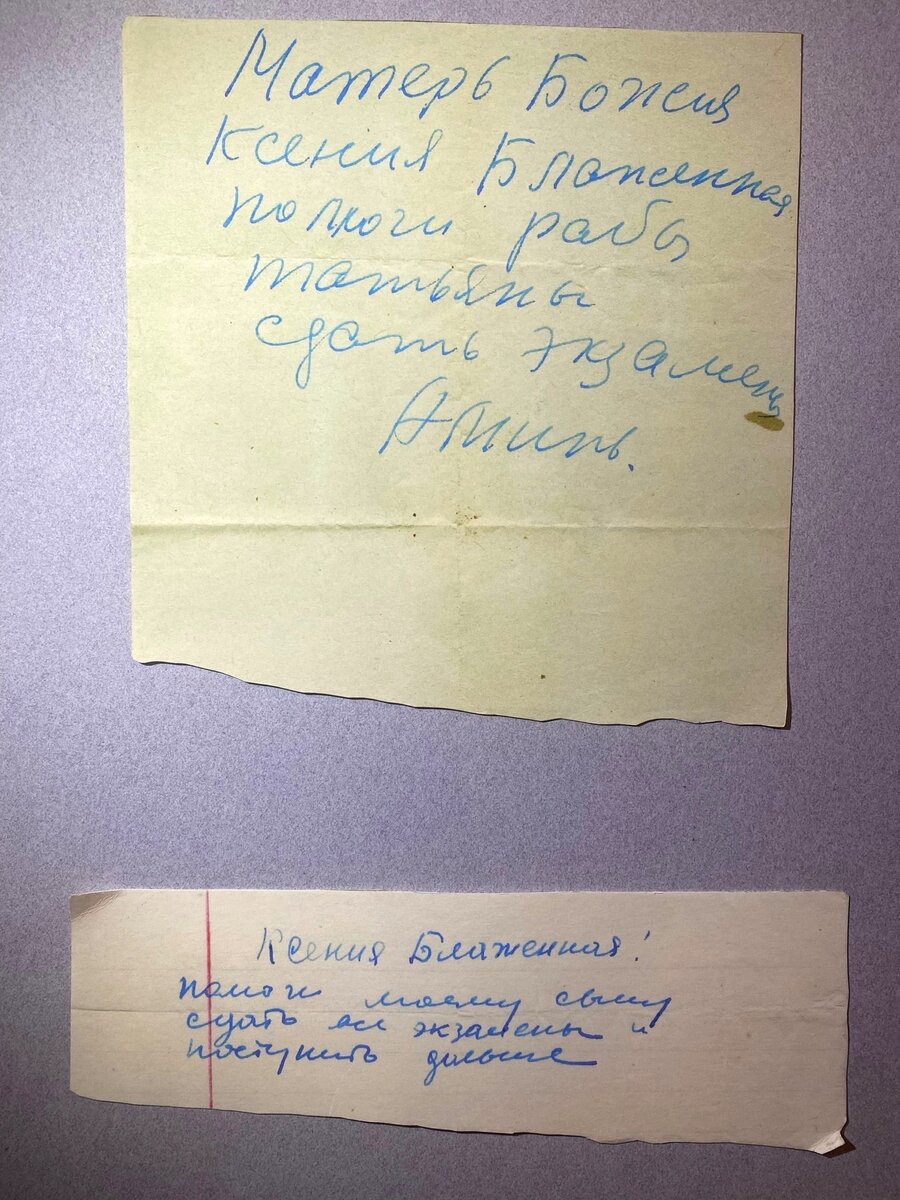 Матерь Божия
Ксения Блаженная
помоги рабы
татьяны
сдать экзамены
Аминь.
Ксения Блаженная!
помоги моему сыну
сдать все экзамены и
поступить дальше